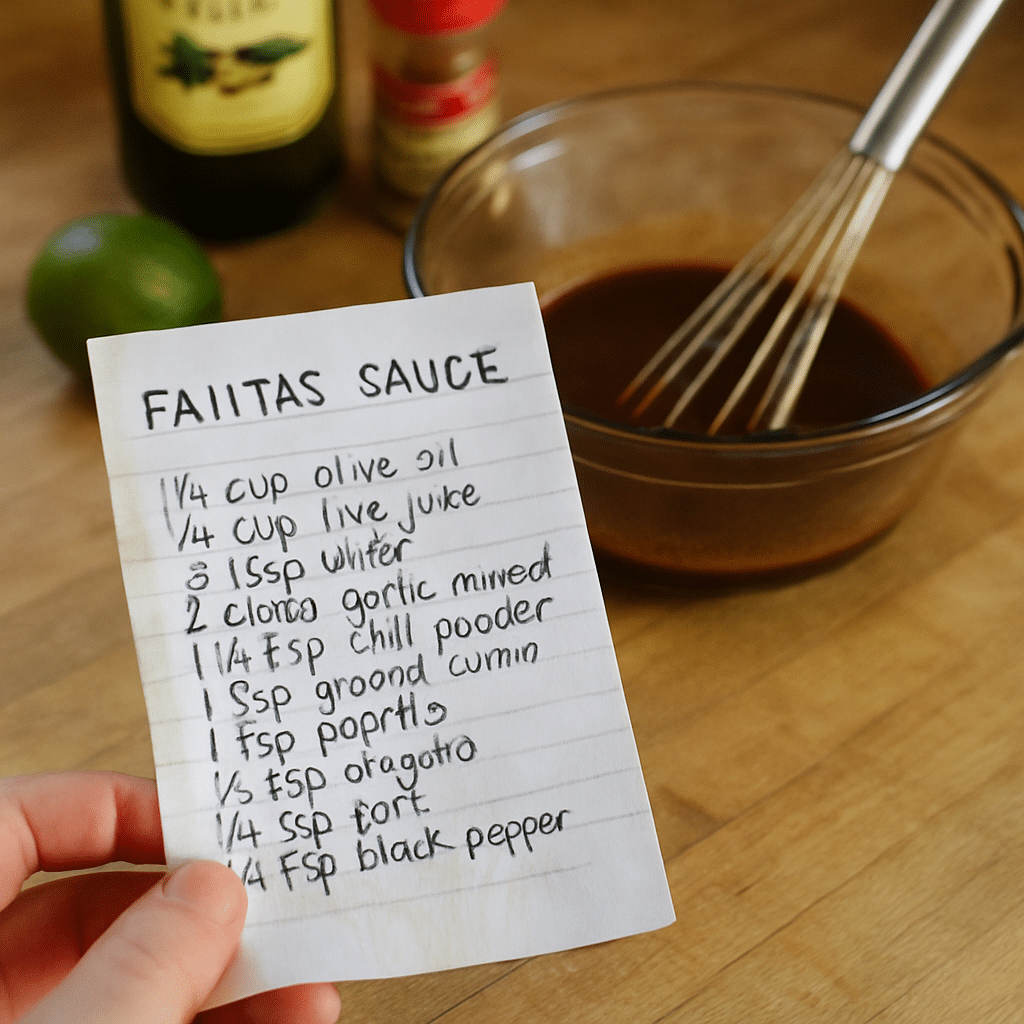 FAIITAS SAUCE
1/4 cup olive oil
1/4 cup live juice
8 1Ssp
2 clorco gortic minved
1 1/4 Fsp chill pooder
1 Ssp groond cumin
1 Fsp poprtls
1/3 tsp oragotro
1/4 ssp tort
1/4 FSp black pepper